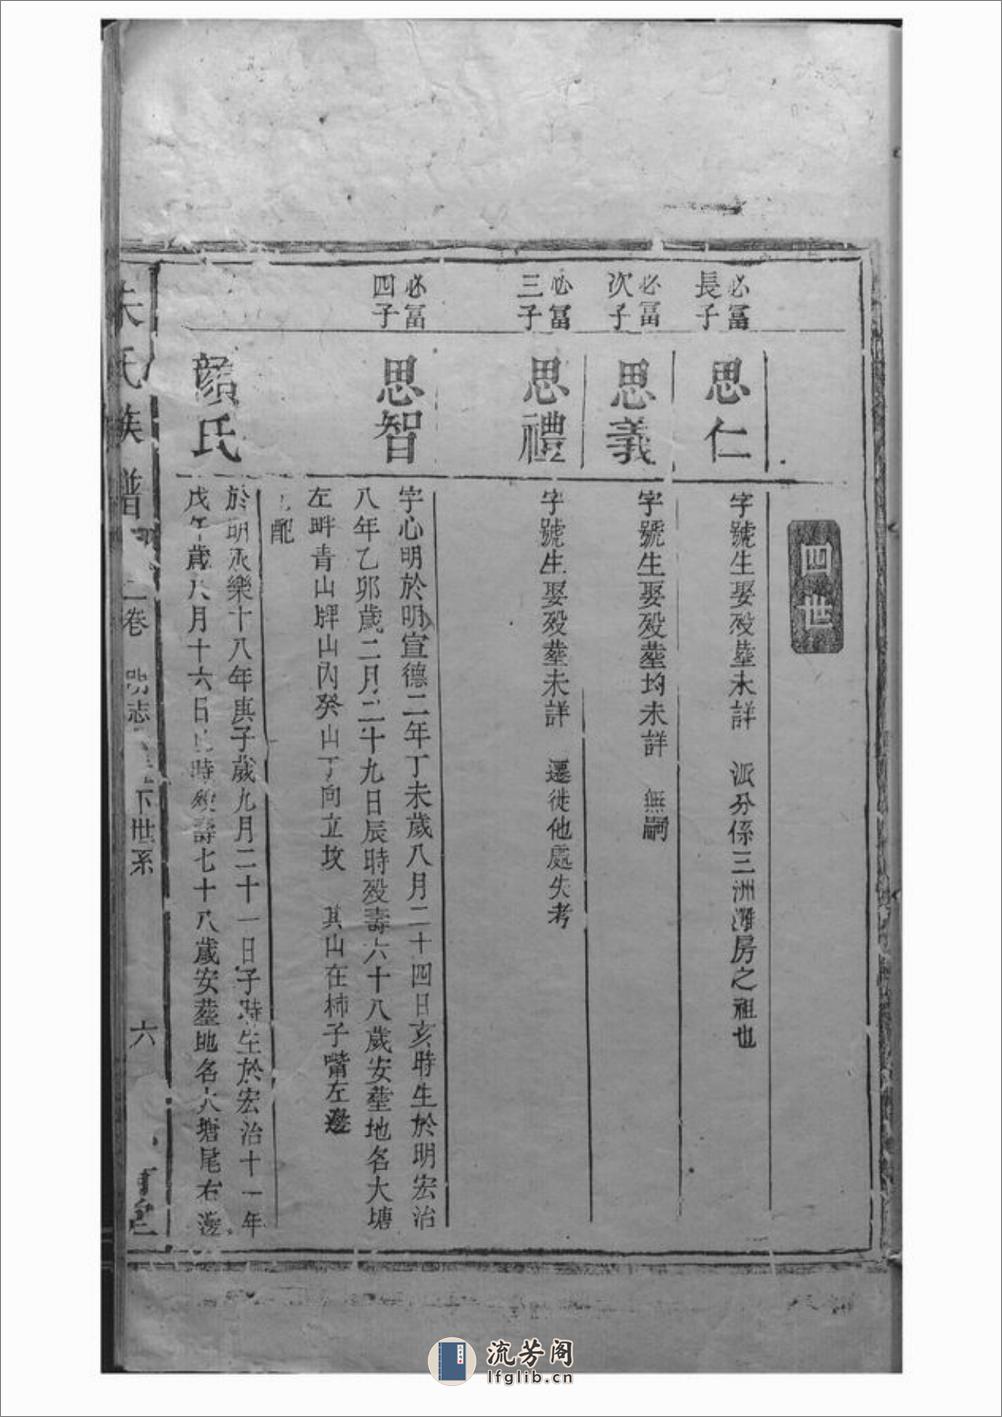 四世
必冨
長子
思仁
字號生娶殁塟未詳 派分係三洲灘房之祖也
必冨
次子
思義
字號生娶殁塟均未詳 無嗣
必冨
三子
思禮
字號生娶殁塟未詳 遷徙他處失考
必冨
四子
思智
字心明於明宣德二年丁未歲八月二十四日亥時生於明宏治
八年乙卯歲二月二十九日辰時殁壽六十八歲安塟地名大塘
左畔青山牌山內癸山丁向立坟 其山在柿子嘴左邊
配
顏氏
於明永樂十八年庚子歲九月二十一日子時生於宏治十一年
戊午歲八月十六日時殁壽七十八歲安塟地名大塘尾右邊
朱氏族譜 二卷 世系 六
流芳阁
lfglib.cn